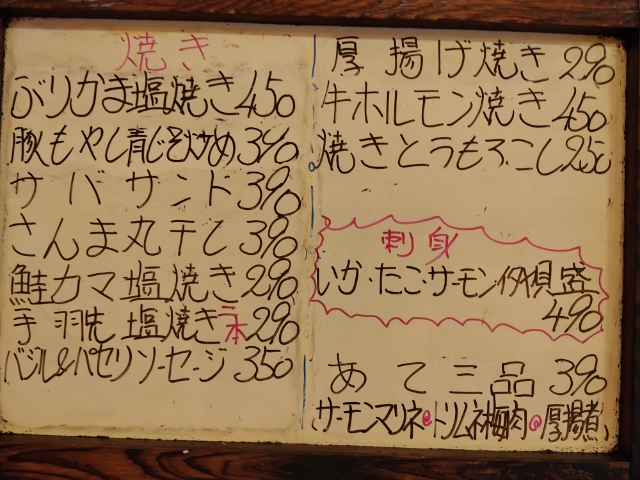 焼き
ぶりかま塩焼き450
豚もやし青じそ炒め390
サバサンド390
さんま丸干し390
鮭カマ塩焼き290
手羽先塩焼き二本290
バジル&パセリソーセージ350
厚揚げ焼き290
牛ホルモン焼き450
焼きとうもろこし250
刺身
いか・たこ・サーモン
490
あて三品390
サーモンマリネ トリムネ梅肉 厚揚煮